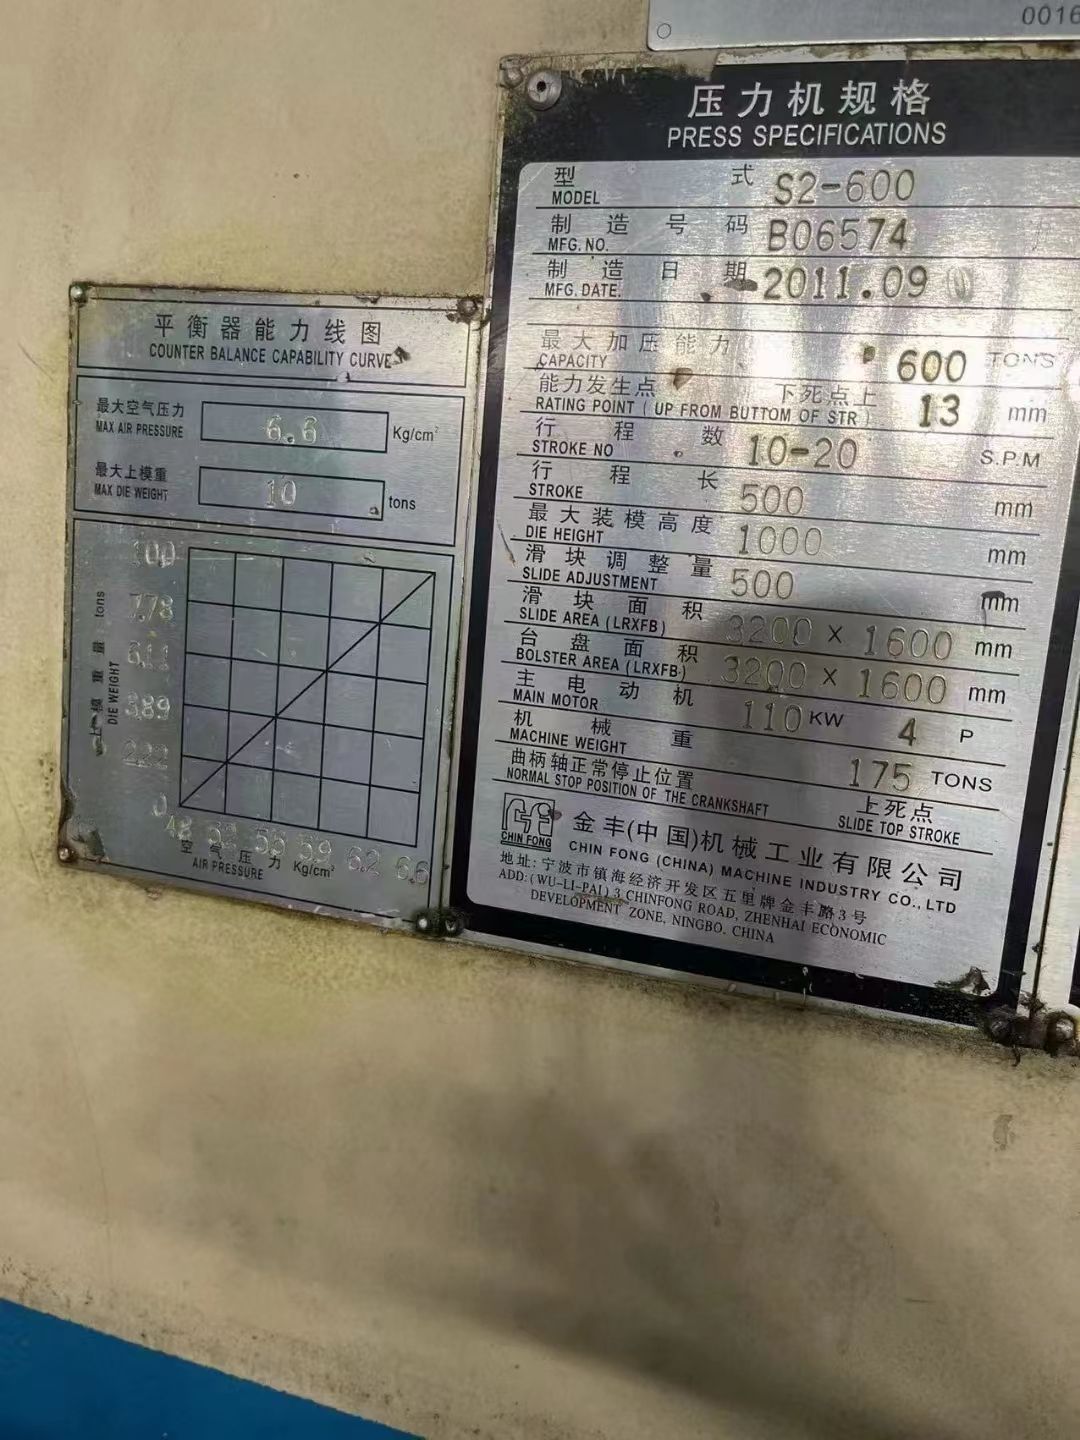 0016
压力机规格
PRESS SPECIFICATIONS
型 式 S2-600
MODEL
制造号码 B06574
MFG. NO.
制造日期 2011.09
MFG. DATE.
最大加压能力 600 TONS
CAPACITY
能力发生点 下死点上 13 mm
RATING POINT (UP FROM BUTTOM OF STR)
行程数 10-20 S.P.M
STROKE NO
行程长 500 mm
STROKE
最大装模高度 1000 mm
DIE HEIGHT
滑块调整量 500 mm
SLIDE ADJUSTMENT
滑块面积 3200 × 1600 mm
SLIDE AREA (LRXFB)
台盘面积 3200 × 1600 mm
BOLSTER AREA (LRXFB)
主电动机 110 KW 4 P
MAIN MOTOR
机械重 175 TONS
MACHINE WEIGHT
曲柄轴正常停止位置 上死点
NORMAL STOP POSITION OF THE CRANKSHAFT SLIDE TOP STROKE
CHIN FONG
金丰(中国)机械工业有限公司
CHIN FONG (CHINA) MACHINE INDUSTRY CO., LTD
地址:宁波市镇海经济开发区五里牌金丰路3号
ADD: (WU-LI-PAI) 3 CHINFONG ROAD, ZHENHAI ECONOMIC
DEVELOPMENT ZONE, NINGBO. CHINA
平衡器能力线图
COUNTER BALANCE CAPABILITY CURVE
最大空气压力 6.6 Kg/cm²
MAX AIR PRESSURE
最大上模重 10 tons
MAX DIE WEIGHT
tons
上模重量
DIE WEIGHT
10.0
7.78
6.11
3.89
2.22
0
4.8 5.2 5.5 5.9 6.2 6.6
空气压力 Kg/cm²
AIR PRESSURE